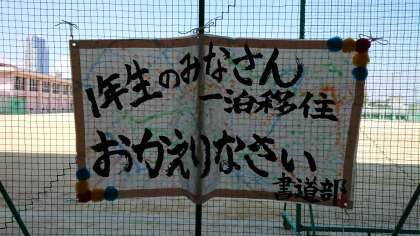 1年生のみなさん
一泊移住
おかえりなさい
書道部